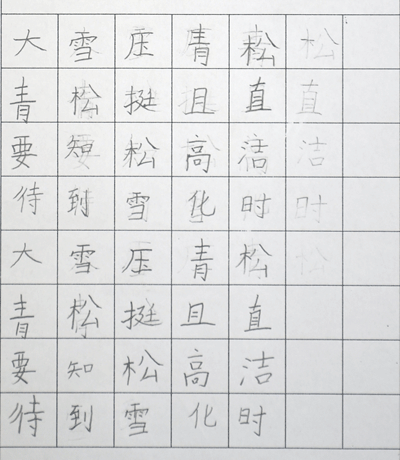 大雪压青松
青松挺且直
要知松高洁
待到雪化时
大雪压青松
青松挺且直
要知松高洁
待到雪化时